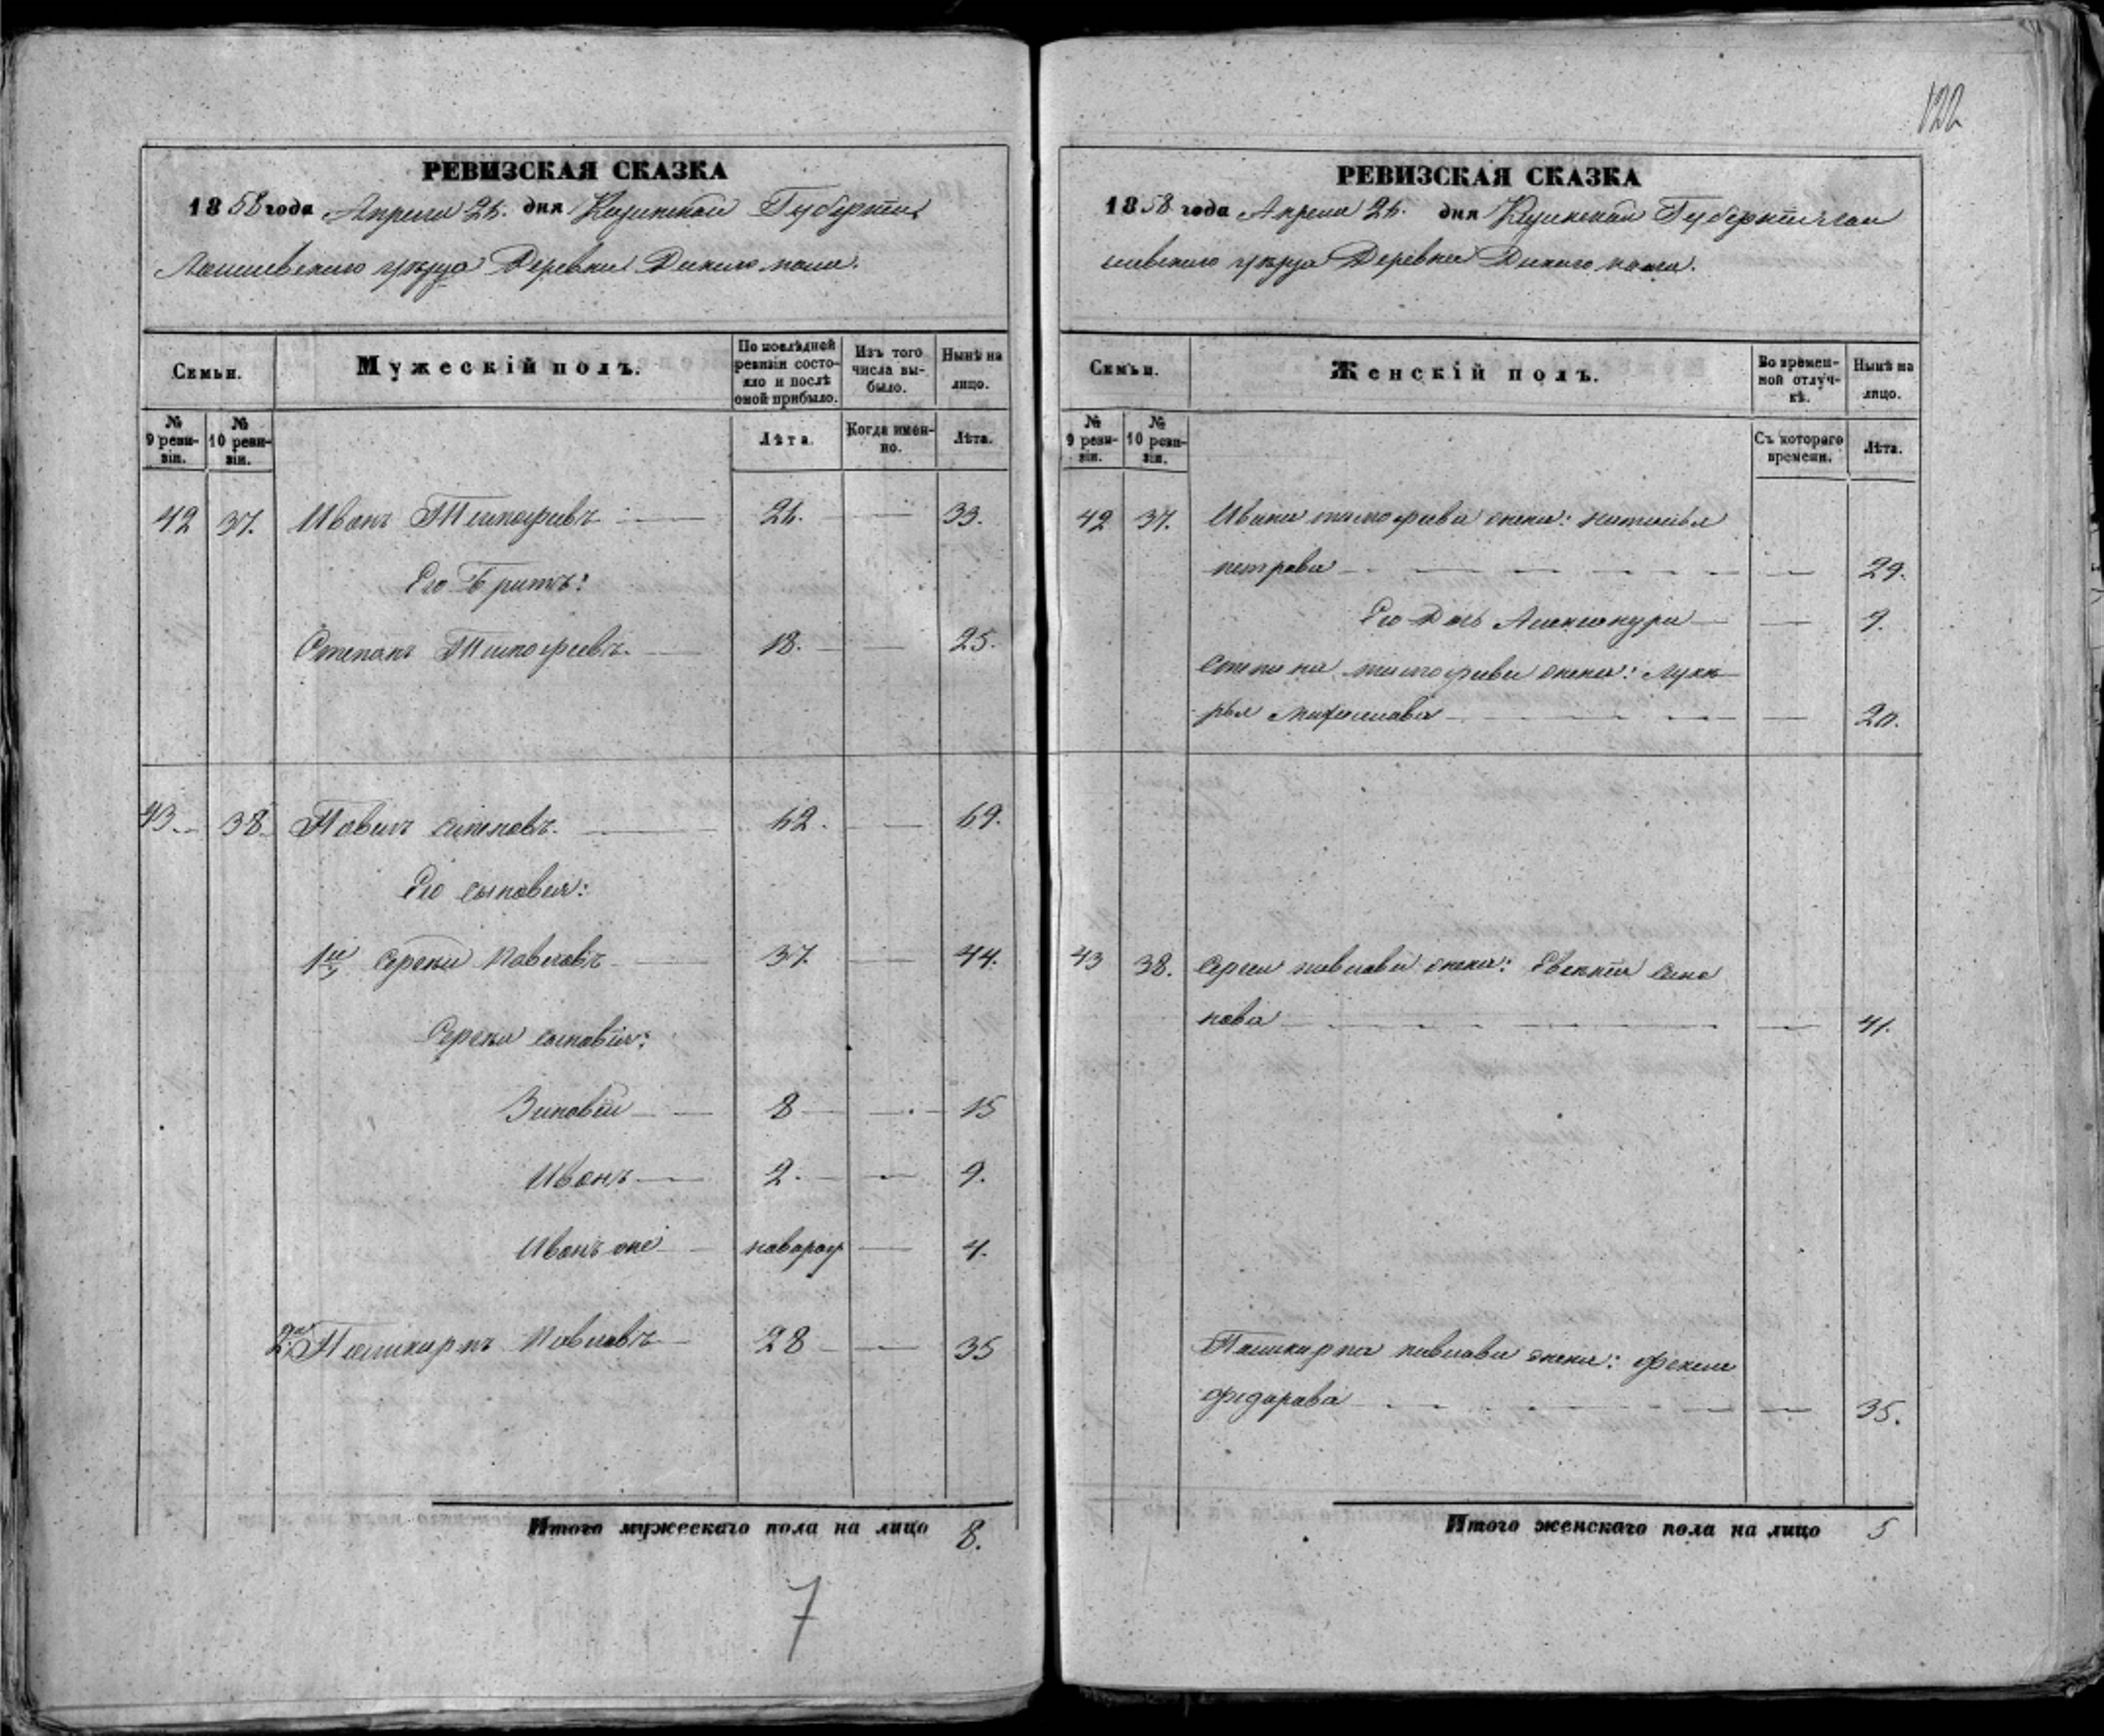 122
РЕВИЗСКАЯ СКАЗКА
1858 года Апреля 26. дня Казанской Губернии
Лаишевского уѣзда Деревни Дикого поля.
Семьи.
Мужескій полъ.
По послѣдней ревизіи состояло и послѣ оной прибыло.
Изъ того числа выбыло.
Нынѣ на лицо.
№ 9 ревизіи.
№ 10 ревизіи.
Лѣта.
Когда именно.
Лѣта.
42 37. Иванъ Тимофѣевъ 26. 33.
Его Братъ:
Степанъ Тимофеевъ. 18. 25.
43 38 Павелъ 62. 69.
Его сыновья:
1й Сергѣй Павловъ 37. 44.
Сергѣя сыновья:
Зиновѣй 8 15
Иванъ 2. 9.
Иванъ оне новорож 4.
2й Павловъ 28 35
Итого мужескаго пола на лицо 8.
7
РЕВИЗСКАЯ СКАЗКА
1858 года Апреля 26. дня Казанской Губернии Лаи
шевского уѣзда Деревни Дикого поля.
Семьи.
Женскій полъ.
Во временной отлучкѣ.
Нынѣ на лицо.
№ 9 ревизіи.
№ 10 ревизіи.
Съ котораго времени.
Лѣта.
42 37. Ивана тимофева жена: наталья
петрова 29.
Его Дочь 9.
Степана тимофева жена: Луке
рья 20.
43 38. Сергея павлава жена:
нова 41.
павлава жена: фекла
федарава 35.
Итого женскаго пола на лицо 5